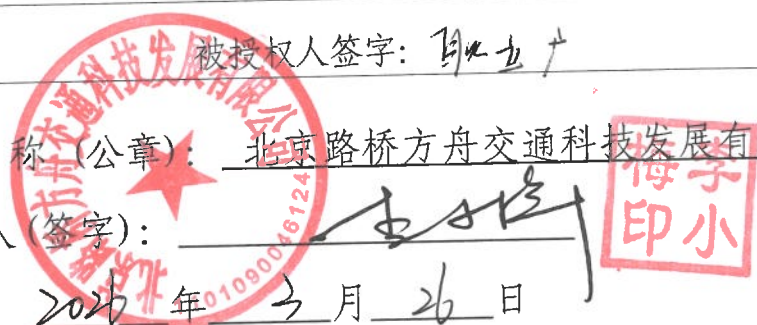 被授权人签字：
称（公章）：北京路桥方舟交通科技发展有
（签字）：
2026年3月26日
北京路桥方舟交通科技发展有限公司
李小梅印